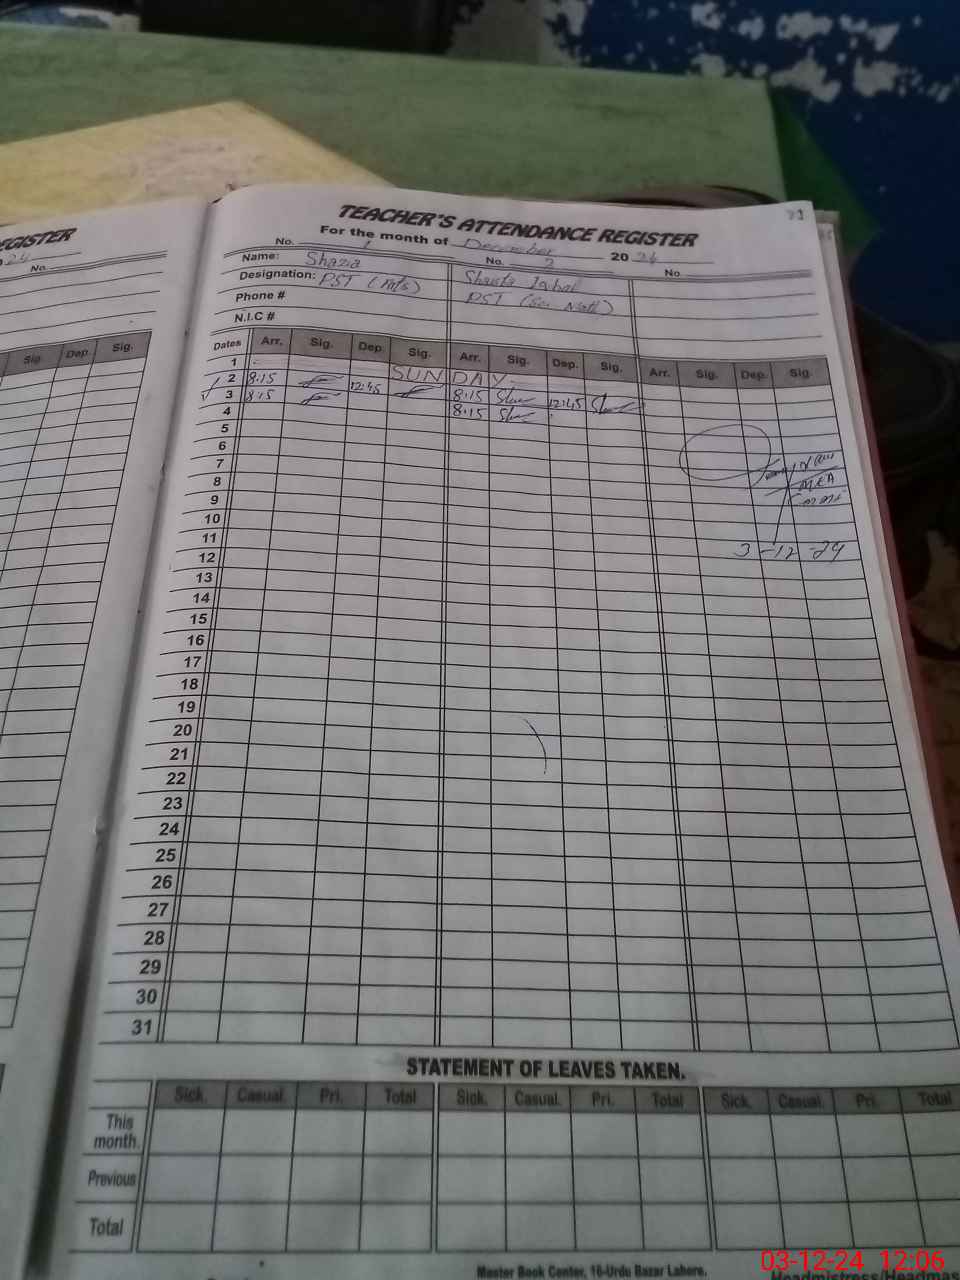 EGISTER
24
No.
Sig.
Dep.
Sig.
TEACHER'S ATTENDANCE REGISTER
For the month of December 2024
No. 1
No. 2
No.
Name: Shazia
Shaista Iqbal
Designation: PST
PST (Sci. Math)
Phone #
N.I.C #
Dates Arr. Sig. Dep. Sig. Arr. Sig. Dep. Sig. Arr. Sig. Dep. Sig.
1 SUNDAY
2 8:15 12:45 8:15 12:45
3 8:15 8:15
4
5
6
7
8
MEA
9
10
11
3-12-24
12
13
14
15
16
17
18
19
20
21
22
23
24
25
26
27
28
29
30
31
STATEMENT OF LEAVES TAKEN.
Sick. Casual. Pri. Total Sick. Casual. Pri. Total Sick. Casual. Pri. Total
This
month.
Previous
Total
Master Book Center, 16-Urdu Bazar Lahore.
03-12-24 12:06